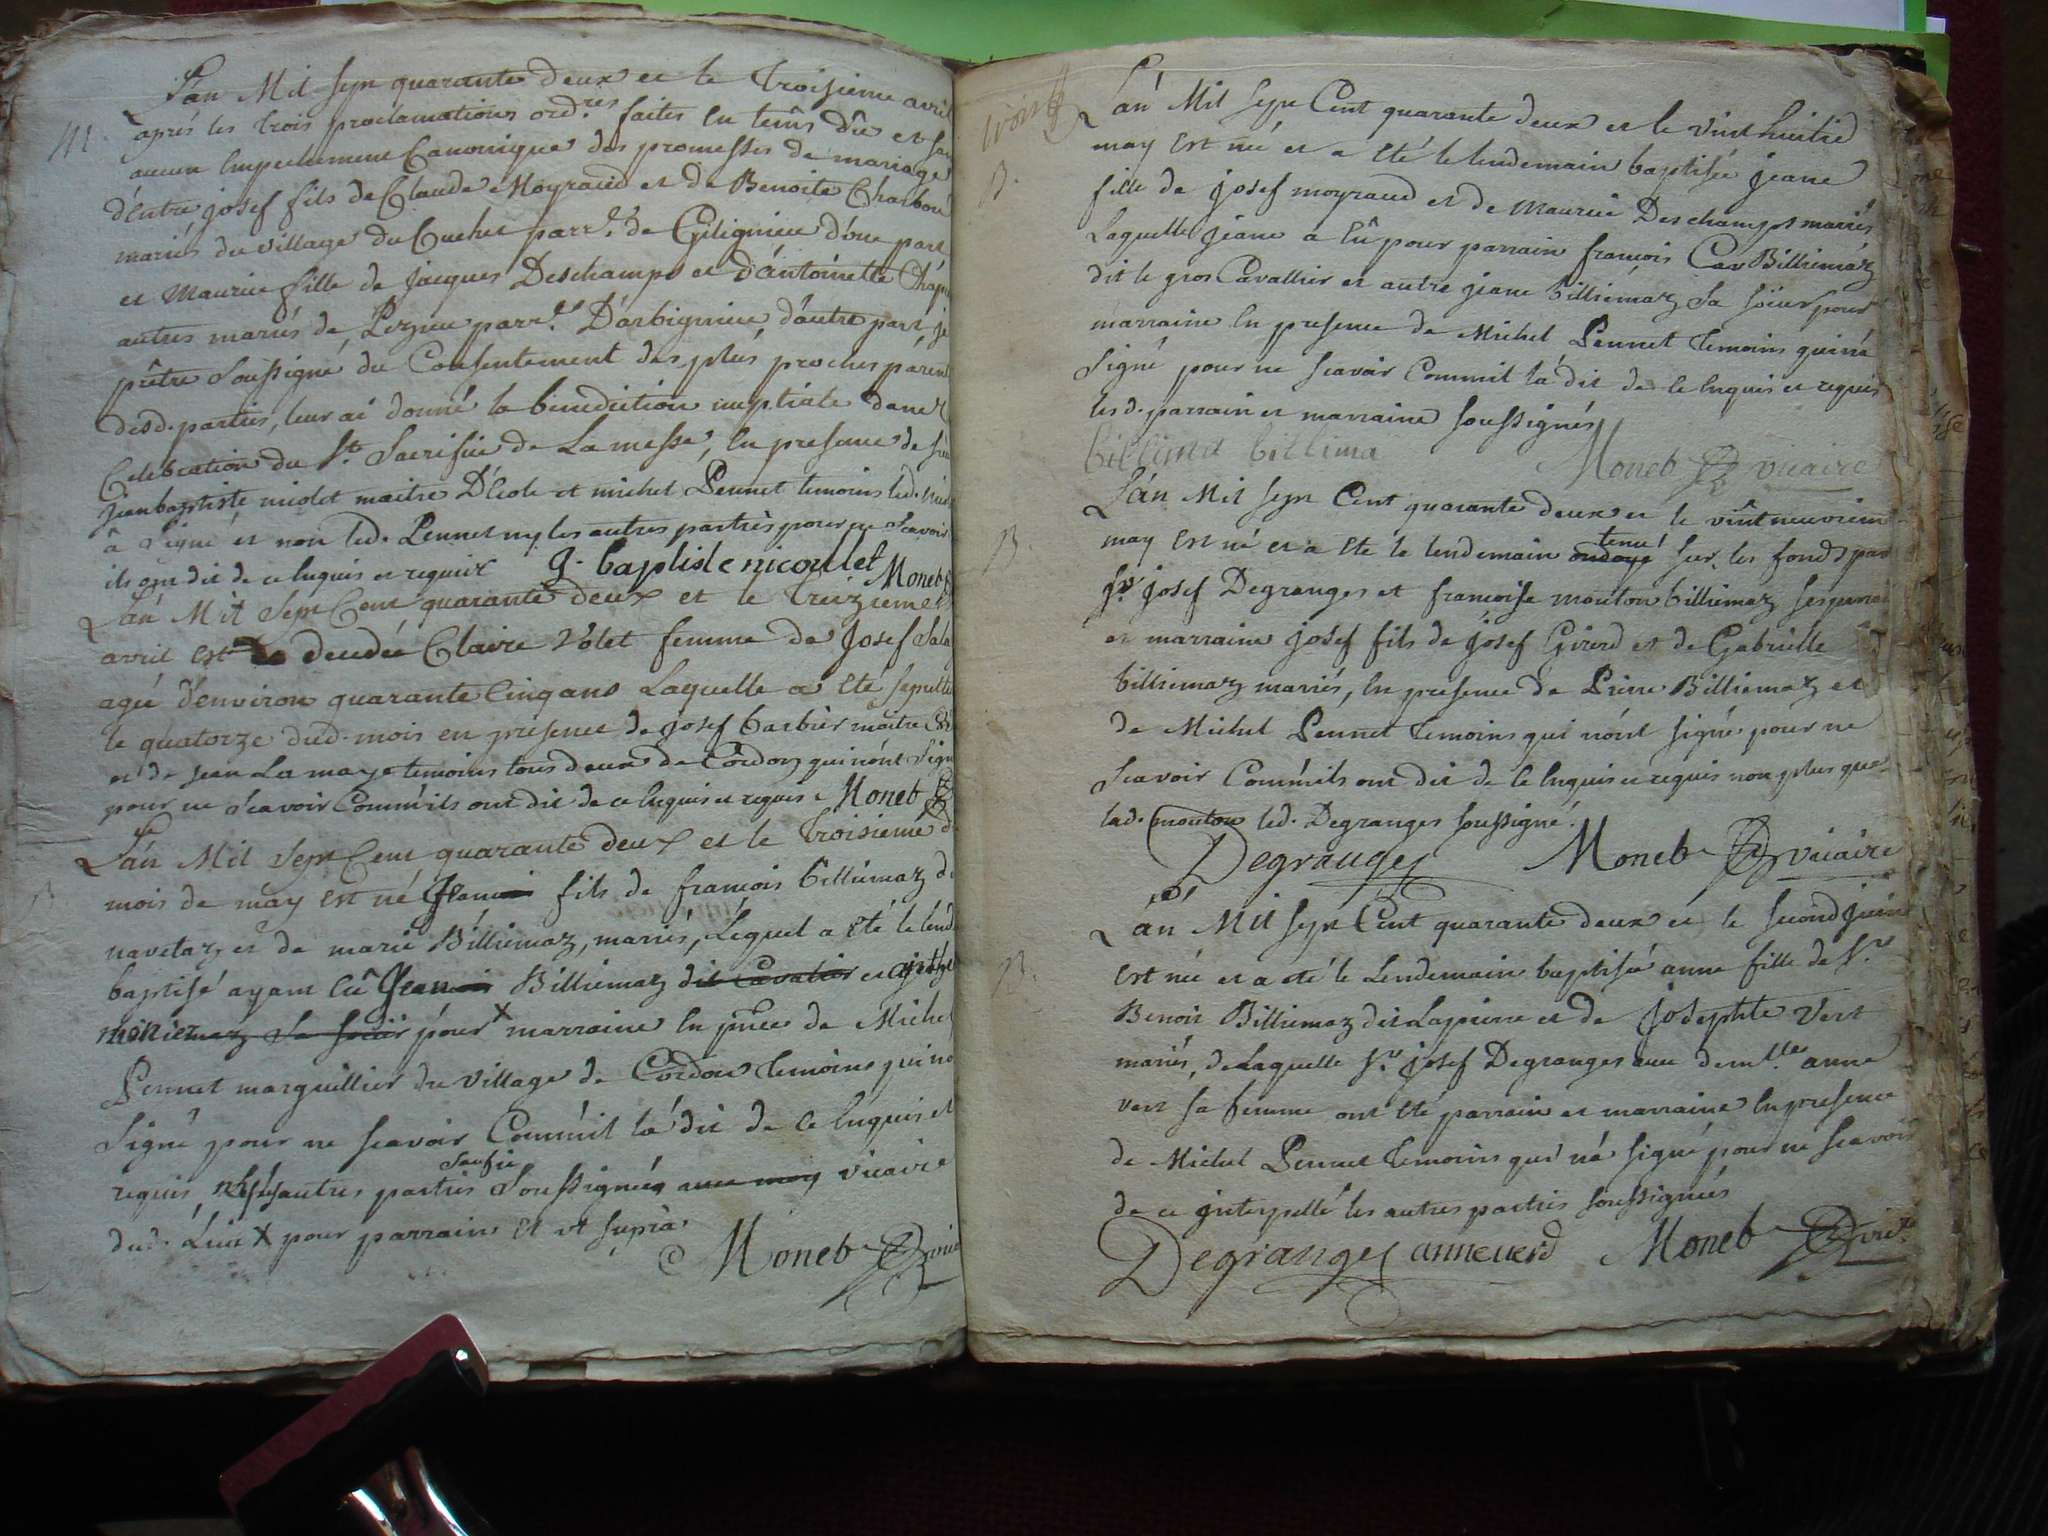 L'an Mil sept quarante deux et le troisieme avril
M. après les trois proclamations ord.res faites en tems dû et sans
aucun empechement Canonique des promesses de mariage
d'entre josef fils de Claude Moyraud et de Benoite Charbon
mariés du village du Cuchet parr.e de Gilignieu d'une part
et Maurice fille de jacques Deschamps et d'antoinette
autres mariés de Pezieu parr.e D'arbignieu d'autre part je
prêtre Soussigné du Consentement des plus proches paren
desd. parties, leur ai donné la benediction nuptiale dans
Celebration du St. Sacrifice de La messe, en presence de
jeanbaptiste miolet maitre D'ecole et michel Pennet temoins led.
â signé et non led. Pennet ny les autres parties pour ne scavoir
ils ont dit de ce enquis et requis g. baptiste nicoulet Moneb
L'an Mil Sept Cent quarante deux et le treizieme
avril est decedée Claire Volet femme de Josef Sala
agée d'environ quarante Cinq ans Laquelle a eté sepulturé
le quatorze dud. mois en présence de josef barbier maitre
et de jean La maye temoins tous deux de Cordon qui n'ont signé
pour ne scavoir Comm'ils ont dit de ce enquis et requis Moneb
L'an Mil Sept Cent quarante deux et le troisieme
B mois de may est né Jean fils de francois billiemaz
navetaz et de marie Billiemaz, mariés, Lequel a eté le lend
baptisé ayant eû Jean Billiemaz dit Cavalier et
moniemaz sa soeur pour x marraine en pñce de Michel
Pennet marguillier du village de Cordon temoins qui n'a
signé pour ne scavoir Comm'il l'a dit de ce enquis et
requis, autres parties Soussignées avec moy vicaire
dud. Lieu x pour parrain et ut suprà
Moneb
L'an Mil sept Cent quarante deux et le vint huitie
B. may est née et a eté le lendemain baptisée jeane
fille de josef moyraud et de maurice Deschamps mariés
Laquelle jeane a eû pour parrain francois Cav Billiemaz
dit le gros Cavallier et autre jeane billiemaz sa soeur pour
marraine en presence de Michel Pennet temoins qui n'a
signé pour ne scavoir Comm'il l'a dit de ce enquis et requis
les d. parrain et marraine soussignés
billima billima Moneb vicaire
L'an Mil sept Cent quarante deux et le vint neuviem
tenu
B. may est né et a eté le lendemain ondoyé sur les fonds par
Sr. josef Degranges et francoise mouton billiemaz ses parrain
et marraine josef fils de josef Girerd et de Gabrielle
billiemaz mariés, en presence de Pierre Billiemaz et
de Michel Pennet temoins qui n'ont signés pour ne
scavoir Comm'ils ont dit de ce enquis et requis non plus que
lad. mouton led. Degranges soussigné.
Degranges Moneb vicaire
L'an Mil sept Cent quarante deux et le second juin
B. est née et a eté le Lendemain baptisée anne fille de Sr.
Benoit Billiemaz dit Lapierre et de josephte Vert
mariés, de Laquelle Sr. josef Degranges avec dem.lle anne
vert sa femme ont eté parrain et marraine en presence
de Michel Pennet temoins qui n'a signé pour ne scavoir
de ce interpellé les autres parties soussignées
Degranges anneverd Moneb vic.re